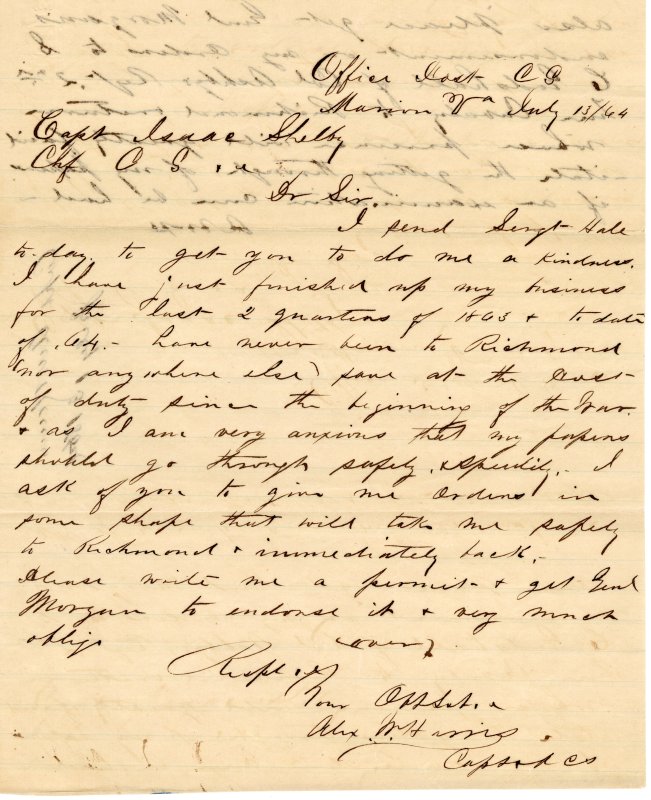 Office Post C S
Marion Va July 13/64
Capt Isaac Shelby
Chf C S &c
Dr Sir.
I send Sergt Hale
to-day. to get you to do me a kindness.
I have just finished up my business
for the last 2 quarters of 1863 & to date
of .64.- have never been to Richmond
(nor anywhere else) save at the Post
of duty since the beginning of the War.
& as I am very anxious that my papers
should go through safely. & speedily.- I
ask of you to give me orders in
some shape that will take me safely
to Richmond & immediately back.-
Please write me a permit & get Genl
Morgan to endorse it & very much
oblige (over)
Respt &c
Your Obt Sevt
Alex. W. Harris
Capt & C S